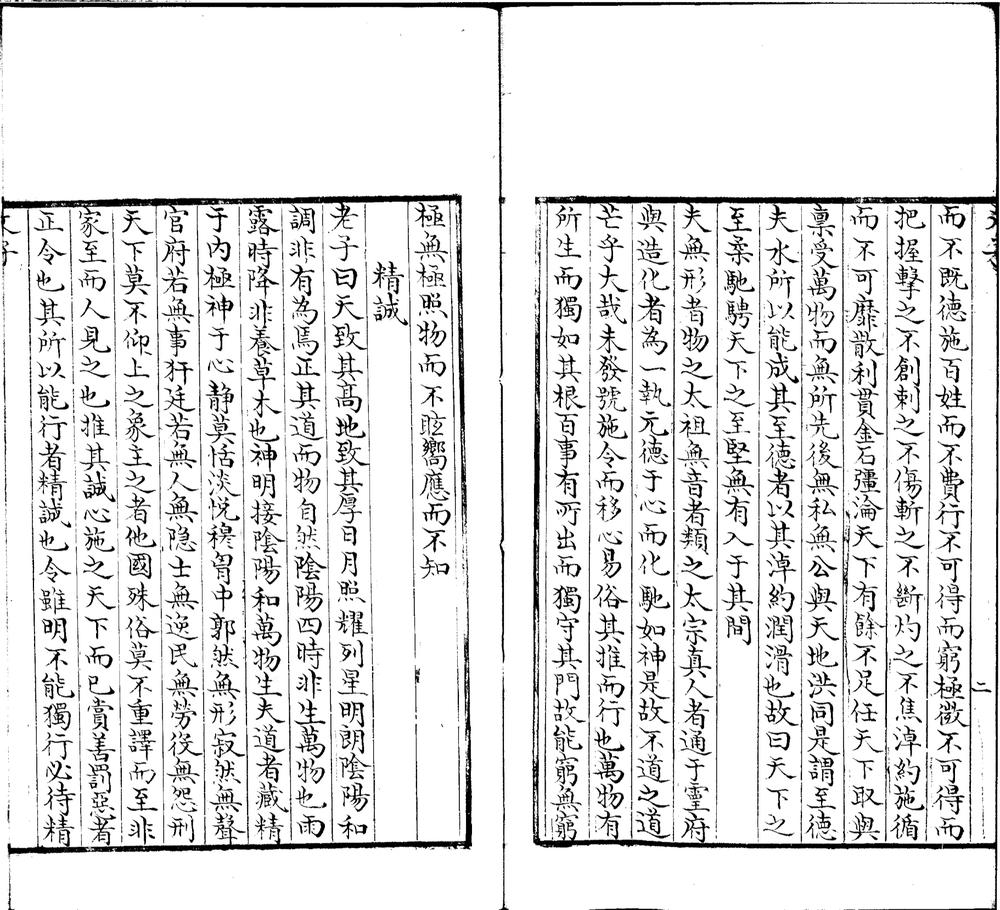 而不既德施百姓而不費行不可得而窮極微不可得而
把握擊之不創刺之不傷斬之不斷灼之不焦淖約施循
而不可靡散利貫金石彊淪天下有餘不足任天下取與
稟受萬物而無所先後無私無公與天地洪同是謂至德
夫水所以能成其至德者以其淖約潤滑也故曰天下之
至柔馳騁天下之至堅無有入于其間
夫無形者物之太祖無音者類之太宗真人者通于靈府
與造化者為一執元德于心而化馳如神是故不道之道
芒乎大哉未發號施令而移心易俗其推而行也萬物有
所生而獨如其根百事有所出而獨守其門故能窮無窮
二
極無極照物而不眩嚮應而不知
精誠
老子曰天致其高地致其厚日月照耀列星明朗陰陽和
調非有為焉正其道而物自然陰陽四時非生萬物也雨
露時降非養草木也神明接陰陽和萬物生夫道者藏精
于内極神于心靜莫恬淡悅穆胷中郭然無形寂然無聲
官府若無事犴廷若無人無隱士無逸民無勞役無怨刑
天下莫不仰上之象主之者他國殊俗莫不重譯而至非
家至而人見之也推其誠心施之天下而已賞善罰惡者
正令也其所以能行者精誠也令雖明不能獨行必待精